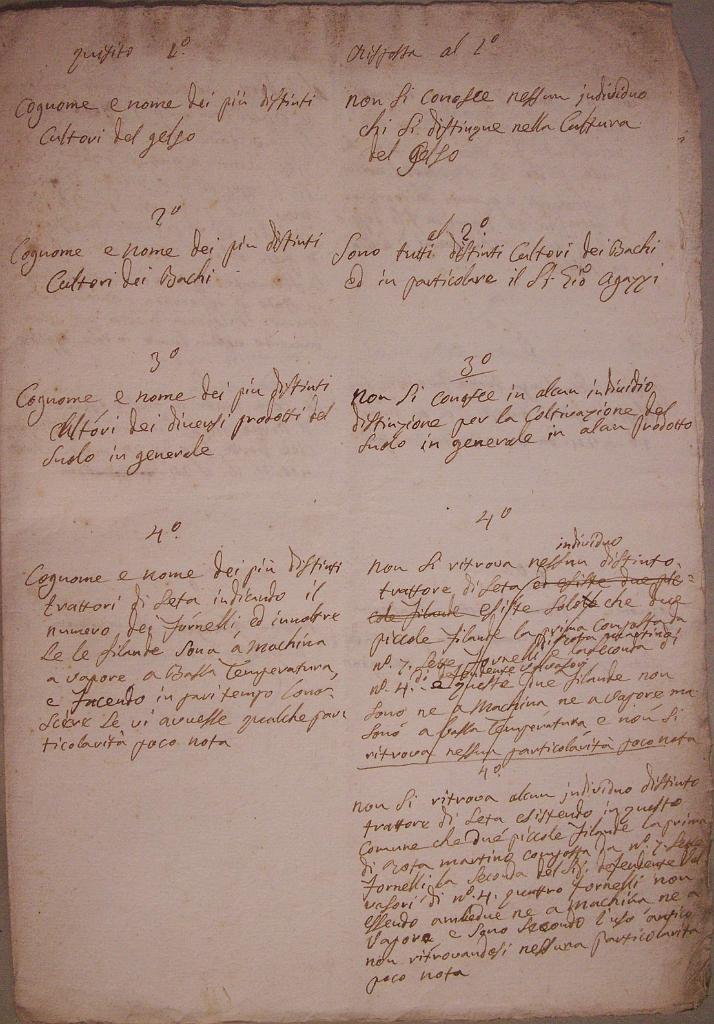 quisito 1º.
Cognome e nome dei più distinti
Cultori del gelso
Risposta al 1º
non si conosce nessun individuo
chi si distingue nella Cultura
del Gelso
2º
Cognome e nome dei piu distinti
Cultori dei Bachi
al 2º
Sono tutti distinti Cultori dei Bachi
ed in particolare il Sr. Gio Agazzi
3º
Cognome e nome dei piu distinti
Cultori dei diversi prodotti del
Suolo in generale
3º
non si conosce in alcun individuo
distinzione per la Coltivazione del
Suolo in generale in alcun prodotto
4º.
Cognome e nome dei più distinti
trattori di Seta indicando il
numero dei Fornelli, ed innoltre
Se le filande sono a Machina
a vapore, a Bassa Temperatura,
e facendo in pari tempo Cono-
Scere Se vi avvesse qualche par-
ticolarità poco nota
4º
individuo
non si ritrova nessun distinto
trattore di Seta ed esiste due pic-
cole filande esiste solo che due
piccole filande la prima composta da
nº. 7. Sette Fornelli e la seconda di
di Rota Martino
nº. 4. e queste due filande non
di defendente Valvasori
Sono ne a Machina ne a Vapore ma
Sono a bassa Temperatura e non si
ritrova nessun particolarità poco nota
4º.
non si ritrova alcun individuo distinto
trattore di Seta esistendo in questo
Comune che due piccole filande la prima
di Rota Martino composta da nº. 7. Sette
Fornelli la Seconda del Sr. defendente Val
vasori di nº. 4. quattro Fornelli non
essendo ambedue ne a machina ne a
Vapore e Sono Secondo l'uso antico
non ritrovandosi nessuna particolarità
poco nota